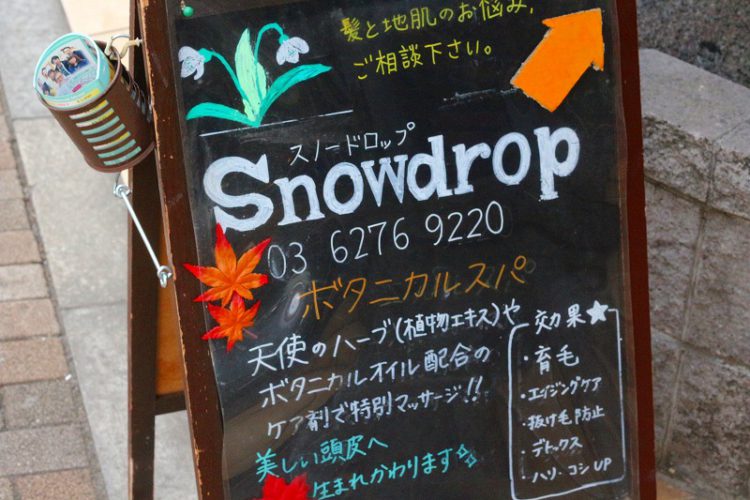 髪と地肌のお悩み、
ご相談下さい。
スノードロップ
Snowdrop
03 6276 9220
ボタニカルスパ
天使のハーブ(植物エキス)や
ボタニカルオイル配合の
ケア剤で特別マッサージ!!
美しい頭皮へ
生まれかわります
効果★
・育毛
・エイジングケア
・抜け毛防止
・デトックス
・ハリ、コシUP